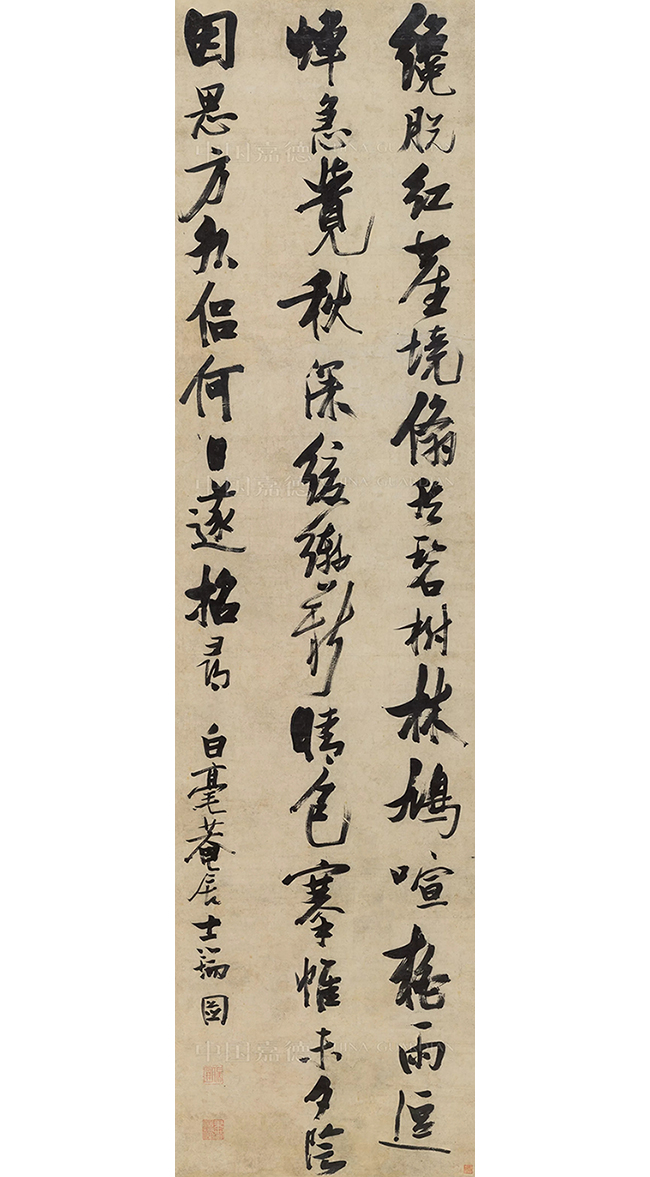 纔脫紅塵境翛然碧樹林鳩喧雨逗
蟬急覺秋深緩轡新晴色搴帷未夕陰
因思方外侶何日遂招尋 白毫菴居士瑞圖
中国嘉德 CHINA GUARDIAN
中国嘉德 CHINA GUARDIAN
中国嘉德 CHINA GUARDIAN